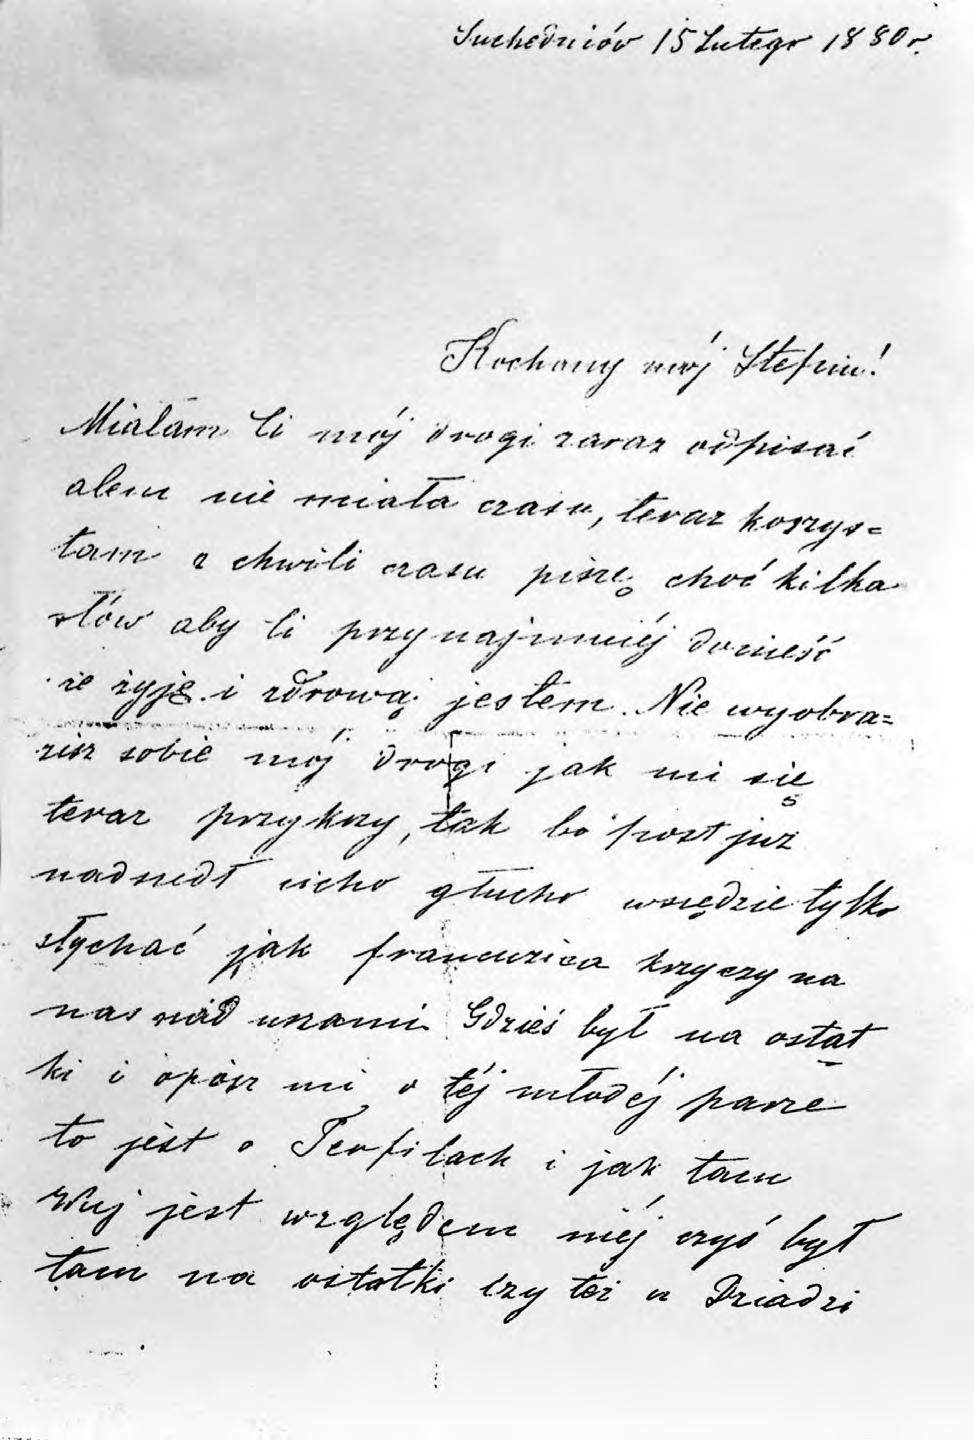 Suchedniów 15 Lutego 1880 r.
Kochany mój Stefciu!
Miałam Ci mój drogi zaraz odpisać
alem nie miała czasu, teraz korzys=
tam z chwili czasu piszę choć kilka
słów aby Ci przynajmniéj donieść
że żyję i zdrową jestem. Nie wyobra=
zisz sobie mój drogi jak mi się
teraz przykrzy, tak bo post już
nadszedł cicho głucho wszędzie tylko
słychać jak francuzica krzyczy na
nas nad uszami Gdzieś był na ostat
ki i opisz mi o téj młodéj parze
to jest o Teofilach i jak tam
Wuj jest względem niéj czyś był
tam na ostatki czy też u Dziadzi